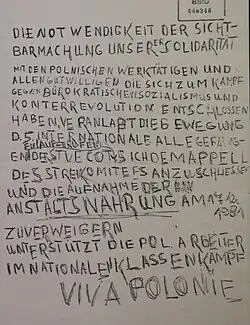 BStU
DIE NOTWENDIGKEIT DER SICHT-
BARMACHUNG UNSERER SOLIDARITÄT
MIT DEN POLNISCHEN WERKTÄTIGEN UND
ALLEN GUTWILLIGEN DIE SICH ZUM KAMPF
GEGEN BÜROKRATISCHEN SOZIALISMUS UND
KONTERREVOLUTION ENTSCHLOSSEN
HABEN, VERANLAßT DIE BEWEGUNG
D. 5. INTERNATIONALE ALLE GEFANG-
ENEN
SICH DEM APPELL
DES STREIKOMITEES ANZUSCHLIESSEN
UND DIE AUFNAHME DER
ANSTALTSNAHRUNG AM 17.12.
1981
ZU VERWEIGERN
UNTERSTÜTZT DIE POL. ARBEITER
IM NATIONALEN KLASSENKAMPF
VIVA POLONIE